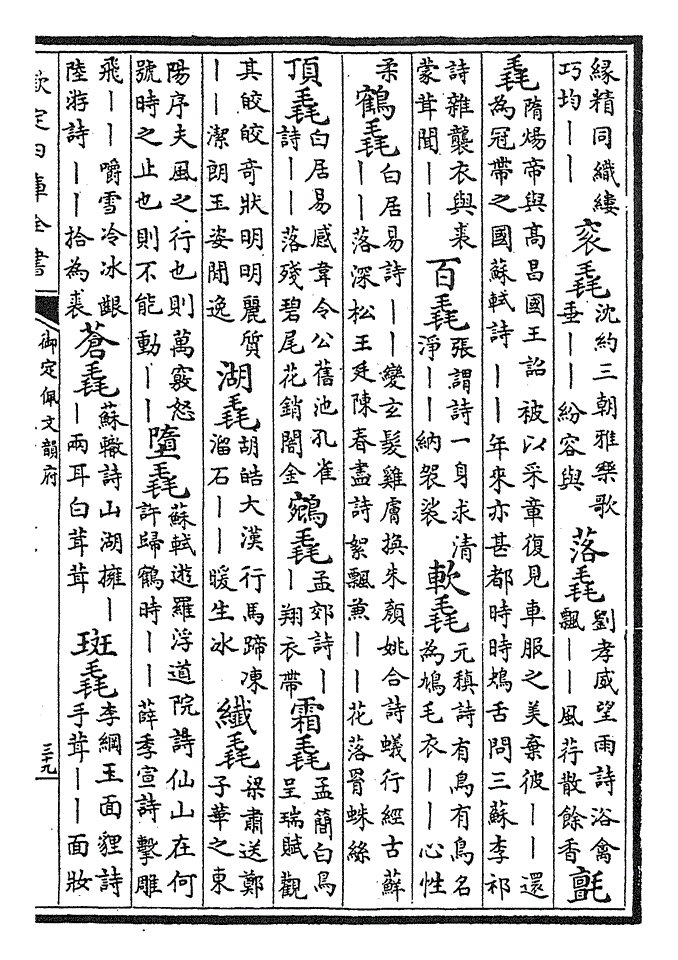 縁精同織縷
巧均——
衮毳
沈約三朝雅樂歌
垂——紛容與
落毳
劉孝威望雨詩浴禽
飄——風荇散餘香
氈
毳
隋煬帝與髙昌國王詔被以采章復見車服之美棄彼——還
為冠帶之國蘇軾詩——年來亦甚都時時鴂舌問三蘇李祁
詩雜襲衣與裘
蒙茸聞——
百毳
張謂詩一身求清
淨——納袈裟
軟毳
元稹詩有鳥有鳥名
為鳩毛衣——心性
柔
鶴毳
白居易詩——變玄髮雞膚換朱顔姚合詩蟻行經古蘚
——落深松王廷陳春盡詩絮飄兼——花落罥蛛絲
頂毳
白居易感韋令公舊池孔雀
詩——落殘碧尾花銷闇金
鵷毳
孟郊詩—
—翔衣帶
霜毳
孟簡白烏
呈瑞賦觀
其皎皎奇狀明明麗質
——潔朗玉姿閒逸
湖毳
胡皓大漠行馬蹄凍
溜石——暖生冰
纖毳
梁肅送鄭
子華之東
陽序夫風之行也則萬竅怒
號時之止也則不能動——
墮毳
蘇軾遊羅浮道院詩仙山在何
許歸鶴時——薛季宣詩擊雕
飛——嚼雪冷冰齦
陸游詩——拾為裘
蒼毳
蘇轍詩山湖擁—
—兩耳白茸茸
斑毳
李綱玉面貍詩
手茸——面妝
欽定四庫全書
御定佩文韻府
三十九